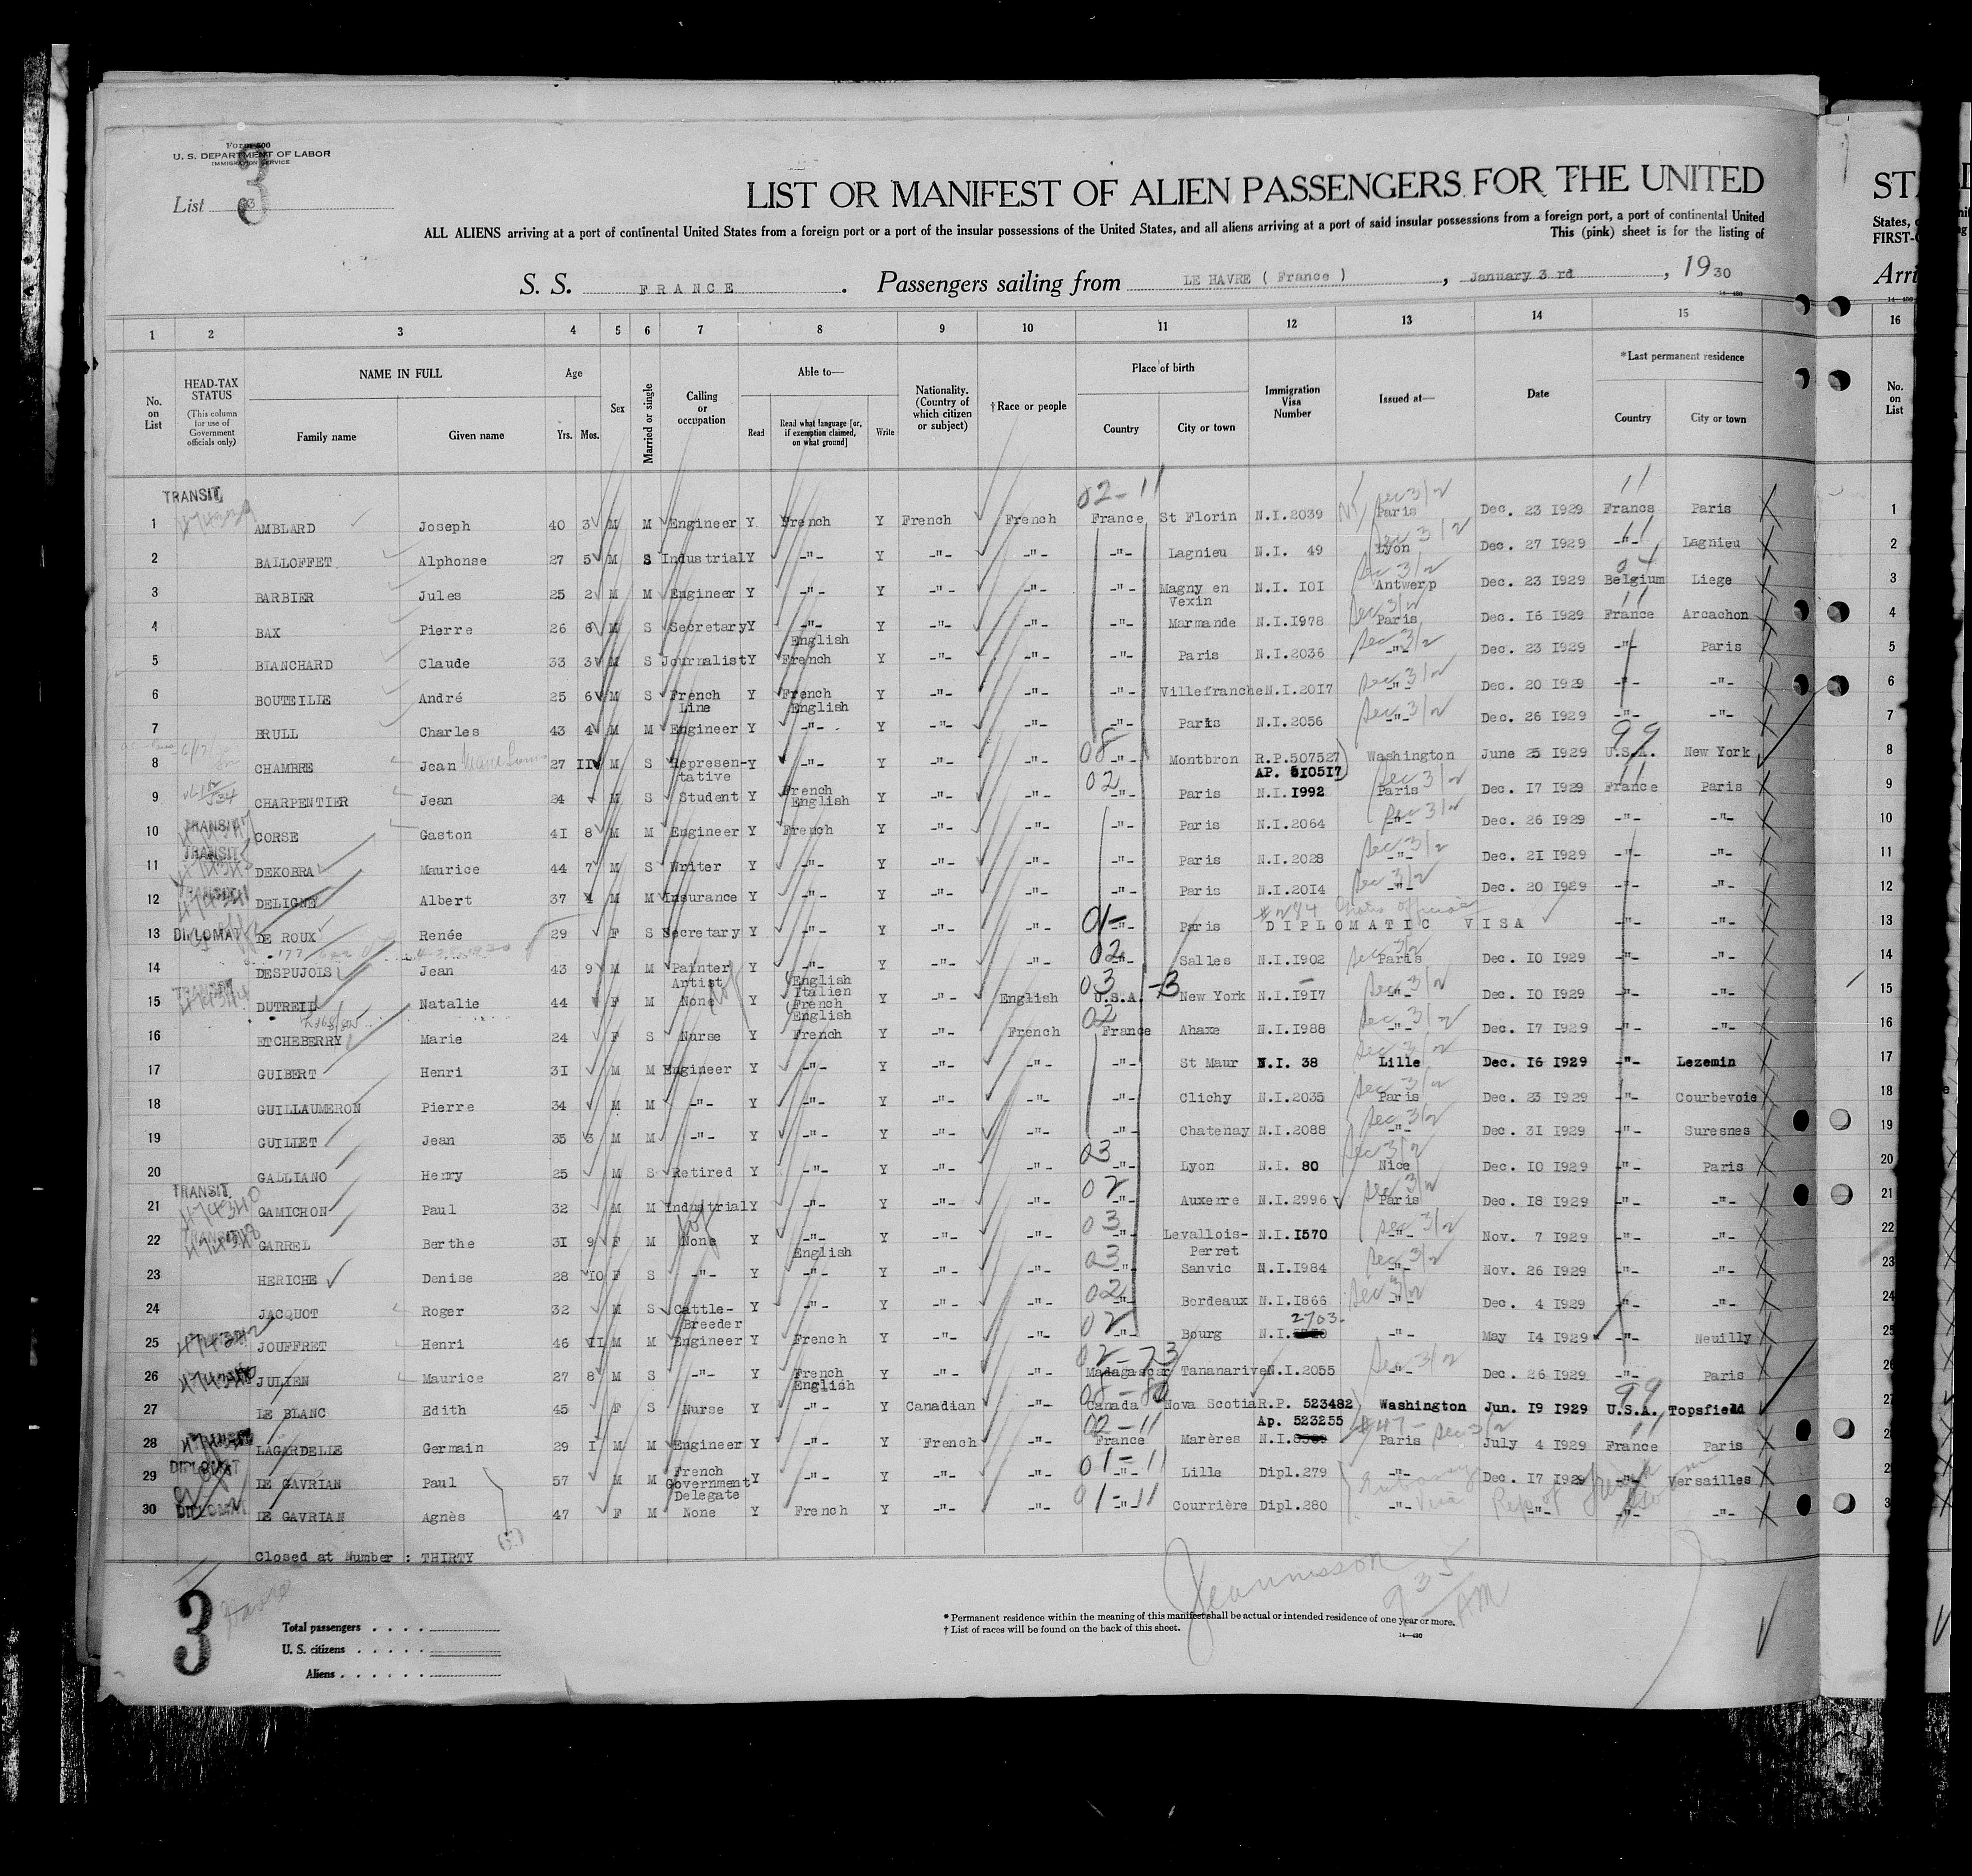 Form 500
U. S. DEPARTMENT OF LABOR
IMMIGRATION SERVICE
List 3
LIST OR MANIFEST OF ALIEN PASSENGERS FOR THE UNITED
ALL ALIENS arriving at a port of continental United States from a foreign port or a port of the insular possessions of the United States, and all aliens arriving at a port of said insular possessions from a foreign port, a port of continental United
This (pink) sheet is for the listing of
S. S. FRANCE. Passengers sailing from LE HAVRE ( France ), January 3 rd, 1930
1 2 3 4 5 6 7 8 9 10 11 12 13 14 15 16
No. on List
HEAD-TAX STATUS (This column for use of Government officials only)
NAME IN FULL Family name Given name
Age Yrs. Mos.
Sex
Married or single
Calling or occupation
Able to— Read Read what language [or, if exemption claimed, on what ground] Write
Nationality. (Country of which citizen or subject)
†Race or people
Place of birth Country City or town
Immigration Visa Number
Issued at—
Date
*Last permanent residence Country City or town
No. on List
TRANSIT
1 AMBLARD Joseph 40 3 M M Engineer Y French Y French French France St Florin N.I.2039 Paris Dec. 23 I929 France Paris 1
2 BALLOFFET Alphonse 27 5 M S Industrial Y -"- Y -"- -"- -"- Lagnieu N.I. 49 Lyon Dec. 27 I929 -"- Lagnieu 2
3 BARBIER Jules 25 2 M M Engineer Y -"- Y -"- -"- -"- Magny en Vexin N.I. IOI Antwerp Dec. 23 I929 Belgium Liege 3
4 BAX Pierre 26 6 M S Secretary Y -"- English Y -"- -"- -"- Marmande N.I.I978 Paris Dec. I6 I929 France Arcachon 4
5 BLANCHARD Claude 33 3 M S Journalist Y French Y -"- -"- -"- Paris N.I.2036 -"- Dec. 23 I929 -"- Paris 5
6 BOUTEILLE André 25 6 M S French Line Y French English Y -"- -"- -"- Villefranche N.I.20I7 -"- Dec. 20 I929 -"- -"- 6
7 BRULL Charles 43 4 M M Engineer Y -"- Y -"- -"- -"- Paris N.I.2056 -"- Dec. 26 I929 -"- -"- 7
8 CHAMBRE Jean 27 II M S Represen-tative Y -"- Y -"- -"- -"- Montbron R.P.507527 AP. 5I05I7 Washington June 25 I929 U.S.A. New York 8
9 CHARPENTIER Jean 24 M S Student Y French English Y -"- -"- -"- Paris N.I.I992 Paris Dec. I7 I929 France Paris 9
TRANSIT
10 CORSE Gaston 4I 8 M M Engineer Y French Y -"- -"- -"- Paris N.I.2064 -"- Dec. 26 I929 -"- -"- 10
TRANSIT
11 DEKOBRA Maurice 44 7 M S Writer Y -"- Y -"- -"- -"- Paris N.I.2028 -"- Dec. 2I I929 -"- -"- 11
TRANSIT
12 DELIGNE Albert 37 4 M M Insurance Y -"- Y -"- -"- -"- Paris N.I.20I4 -"- Dec. 20 I929 -"- -"- 12
13 DIPLOMAT DE ROUX Renée 29 F S Secretary Y -"- Y -"- -"- -"- Paris DIPLOMATIC VISA -"- -"- 13
14 DESPUJOIS Jean 43 9 M M Painter Artist Y -"- Y -"- -"- -"- Salles N.I.I902 Paris Dec. IO I929 -"- -"- 14
TRANSIT
15 DUTREIL Natalie 44 F M None Y English Italien French English Y -"- English U.S.A. New York N.I.I9I7 -"- Dec. IO I929 -"- -"- 15
16 ETCHEBERRY Marie 24 F S Nurse Y French Y -"- French France Ahaxe N.I.I988 -"- Dec. I7 I929 -"- -"- 16
17 GUIBERT Henri 3I M M Engineer Y -"- Y -"- -"- -"- St Maur N.I. 38 Lille Dec. I6 I929 -"- Lezemin 17
18 GUILLAUMERON Pierre 34 M M -"- Y -"- Y -"- -"- -"- Clichy N.I.2035 Paris Dec. 23 I929 -"- Courbevoie 18
19 GUILIET Jean 35 3 M M -"- Y -"- Y -"- -"- -"- Chatenay N.I.2088 -"- Dec. 3I I929 -"- Suresnes 19
20 GALLIANO Henry 25 M S Retired Y -"- Y -"- -"- -"- Lyon N.I. 80 Nice Dec. IO I929 -"- Paris 20
TRANSIT
21 GAMICHON Paul 32 M M Industrial Y -"- Y -"- -"- -"- Auxerre N.I.2996 Paris Dec. I8 I929 -"- -"- 21
22 GARREL Berthe 3I 9 F M None Y -"- English Y -"- -"- -"- Levallois-Perret N.I.I570 -"- Nov. 7 I929 -"- -"- 22
23 HERICHE Denise 28 IO F S -"- Y -"- Y -"- -"- -"- Sanvic N.I.I984 -"- Nov. 26 I929 -"- -"- 23
24 JACQUOT Roger 32 M S Cattle-Breeder Y -"- Y -"- -"- -"- Bordeaux N.I.I866 -"- Dec. 4 I929 -"- -"- 24
25 JOUFFRET Henri 46 II M M Engineer Y French Y -"- -"- -"- Bourg N.I. 2703 -"- May I4 I929 -"- Neuilly 25
26 JULIEN Maurice 27 8 M S -"- Y French English Y -"- -"- Madagascar Tananarive N.I.2055 -"- Dec. 26 I929 -"- Paris 26
27 LE BLANC Edith 45 F S Nurse Y -"- Y Canadian -"- Canada Nova Scotia R.P. 523482 Ap. 523255 Washington Jun. I9 I929 U.S.A. Topsfield 27
28 LAGARDELLE Germain 29 I M M Engineer Y -"- Y French -"- France Marères N.I. Paris July 4 I929 France Paris
DIPLOMAT
29 LE GAVRIAN Paul 57 M M French Government Delegate Y -"- Y -"- -"- -"- Lille Dipl.279 -"- Dec. I7 I929 -"- Versailles
30 DIPLOMAT LE GAVRIAN Agnès 47 F M None Y French Y -"- -"- -"- Courrière Dipl.280 -"- -"- -"- -"-
Closed at Number : THIRTY
3
Total passengers
U. S. citizens
Aliens
* Permanent residence within the meaning of this manifest shall be actual or intended residence of one year or more.
† List of races will be found on the back of this sheet.
935 AM